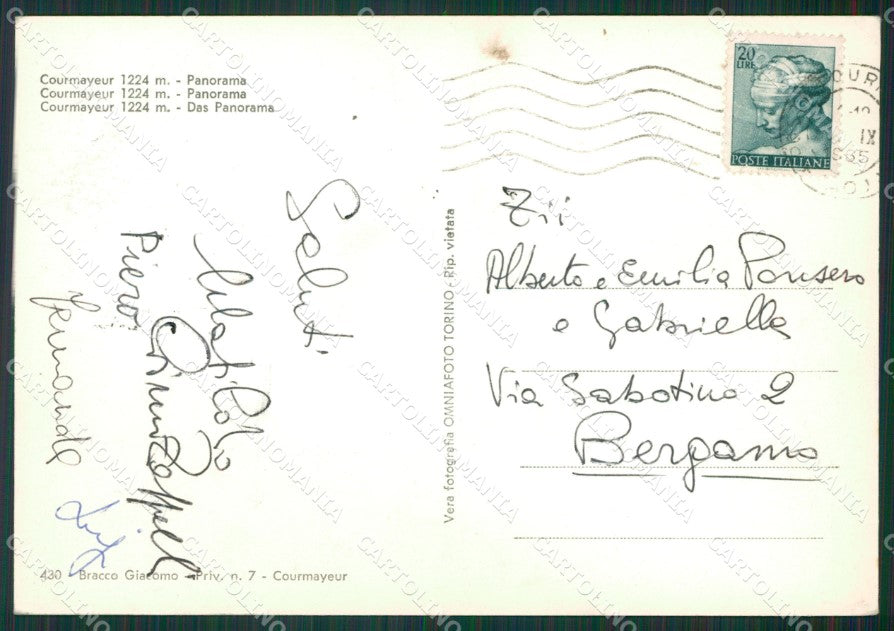 Courmayeur 1224 m. - Panorama
Courmayeur 1224 m. - Panorama
Courmayeur 1224 m. - Das Panorama
20
LIRE
POSTE ITALIANE
IX
Saluti
Piero
Fernanda
Luigi
Vera fotografia OMNIAFOTO TORINO - Rip. vietata
Zii
Alberto e Emilia Pansera
e Gabriella
Via Sabotino 2
Bergamo
430 - Bracco Giacomo - Priv. n. 7 - Courmayeur
CARTOLINOMANIA